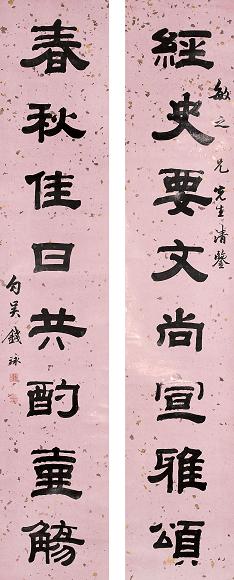 經史要文尚宣雅頌
敏之兄先生清鑒
春秋佳日共酌壺觴
勾吳錢泳